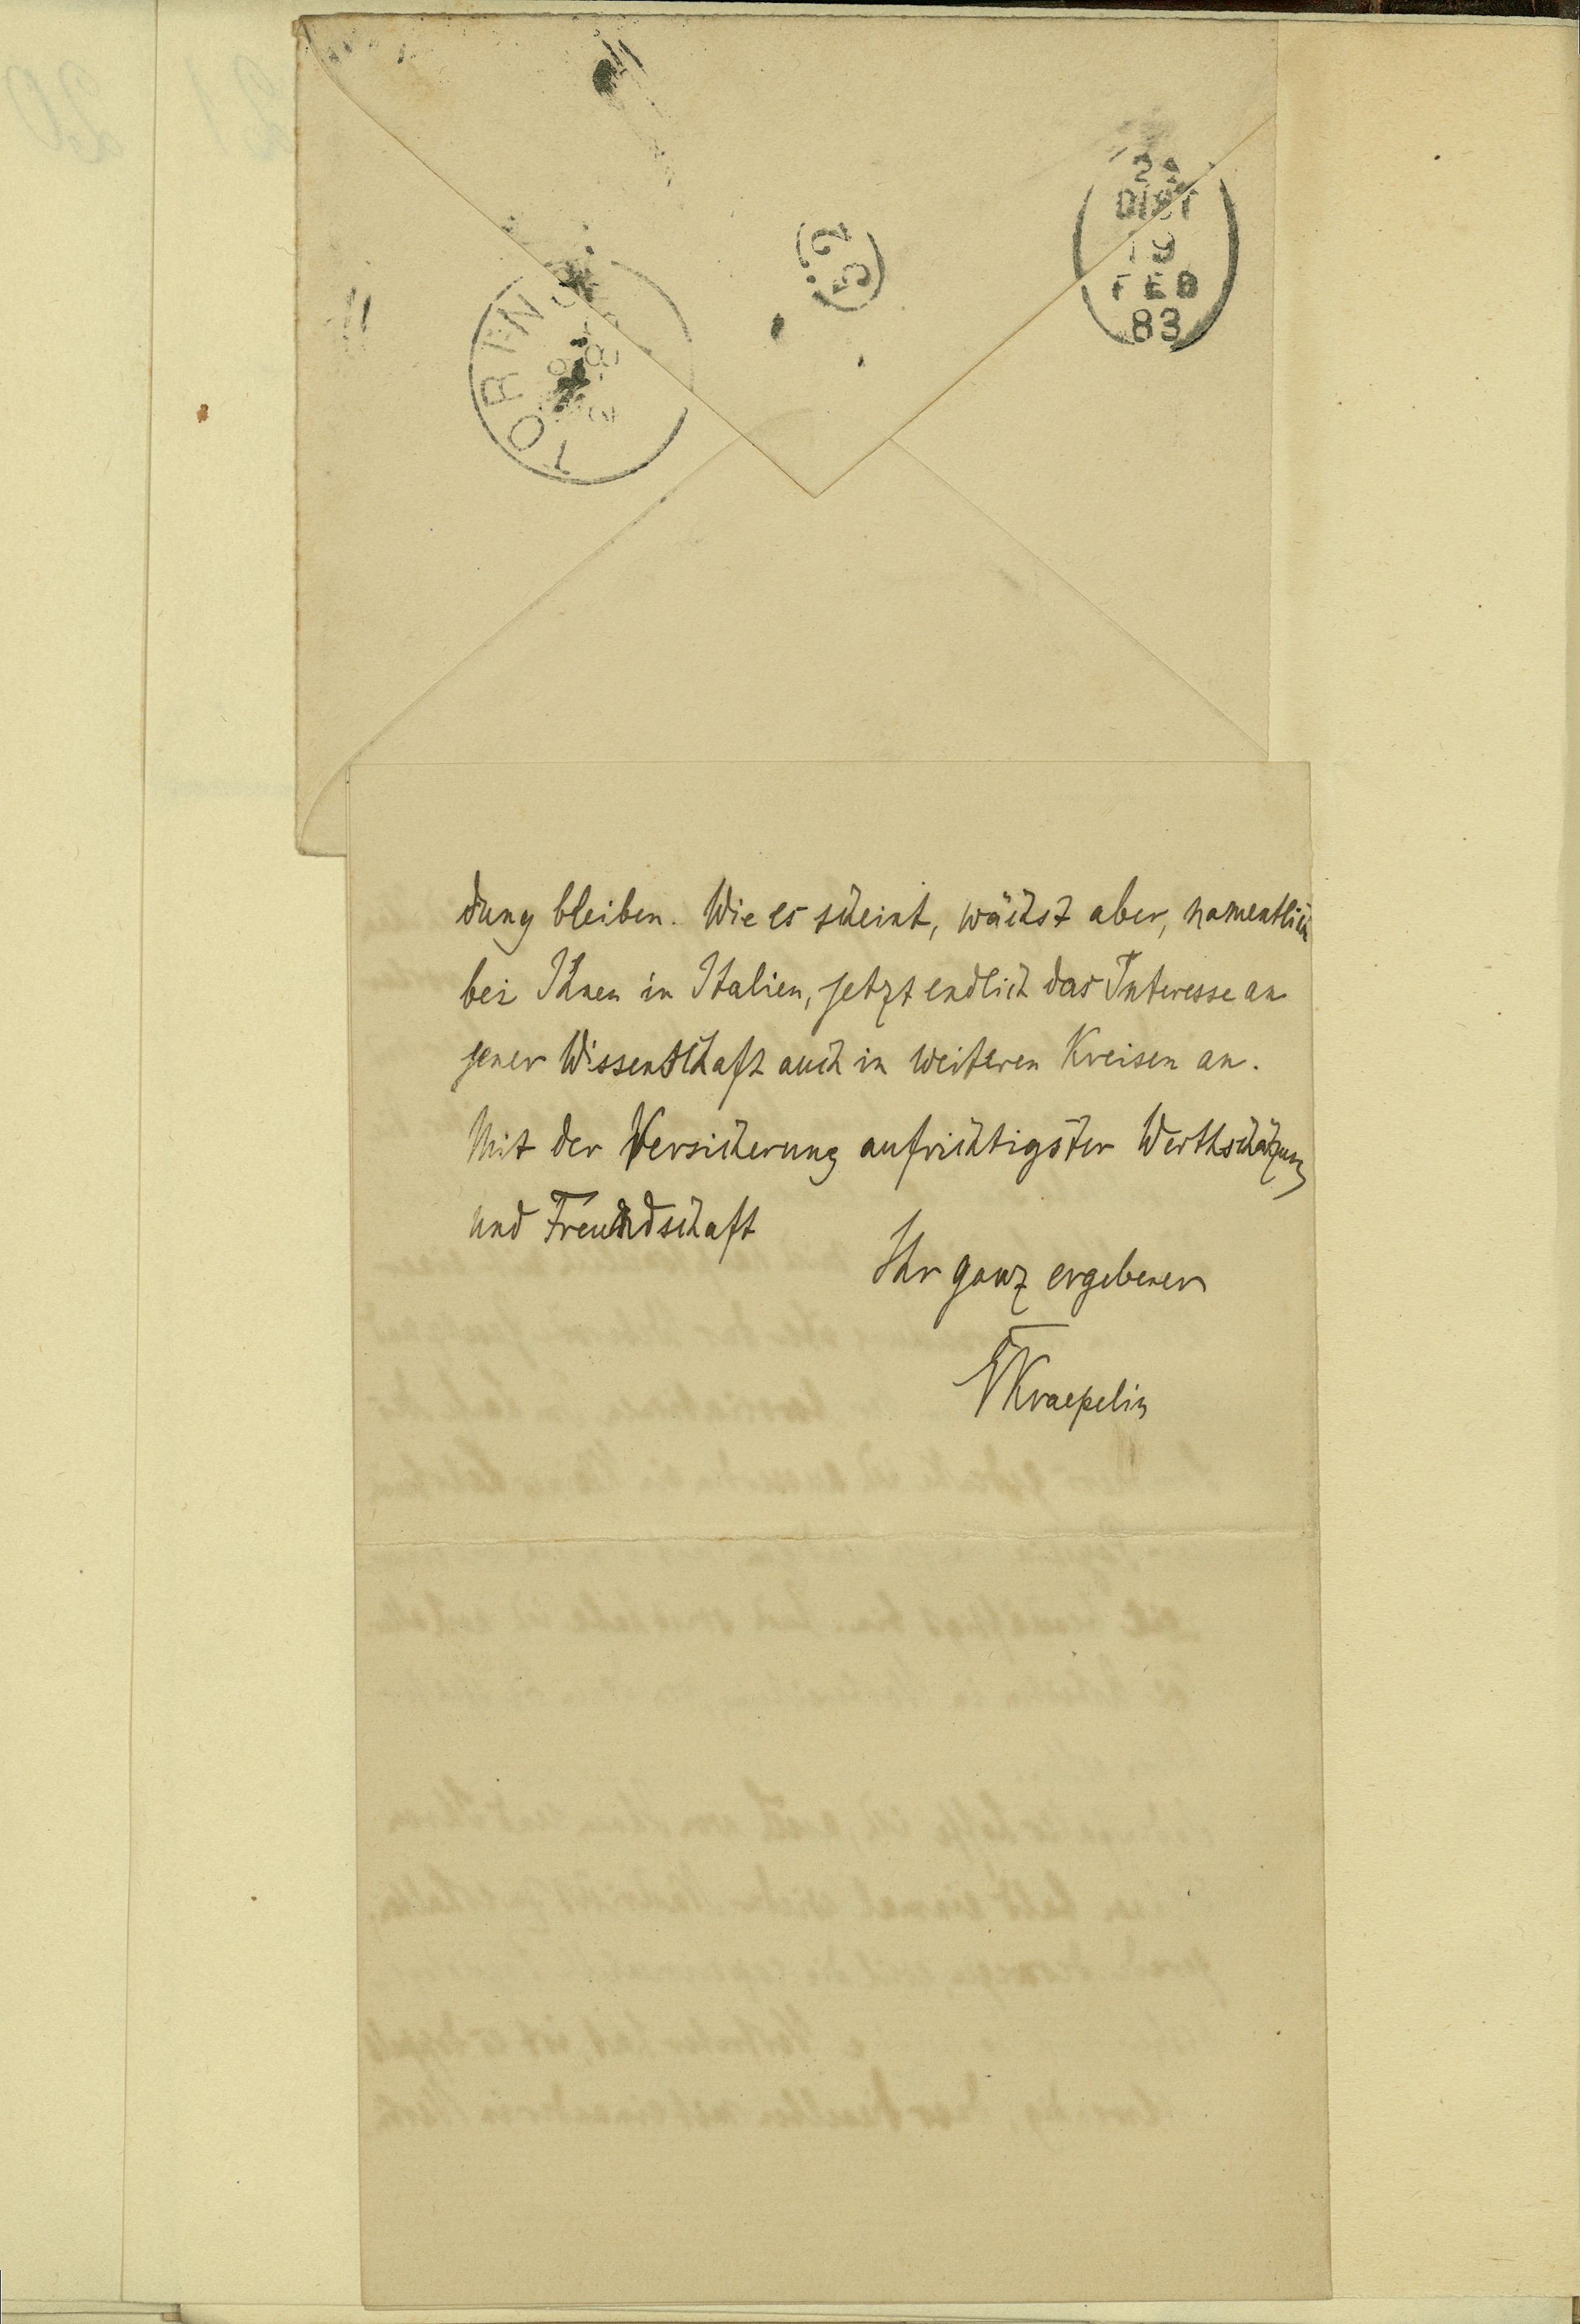 2A
DIST
19
FEB
83
dung bleiben. Wie es scheint, wächst aber, namentlich
bei Ihnen in Italien, jetzt endlich das Interesse an
jener Wissenschaft auch in weiteren Kreisen an.
Mit der Versicherung aufrichtigster Werthschätzung
und Freundschaft
Ihr ganz ergebener
EKraepelin